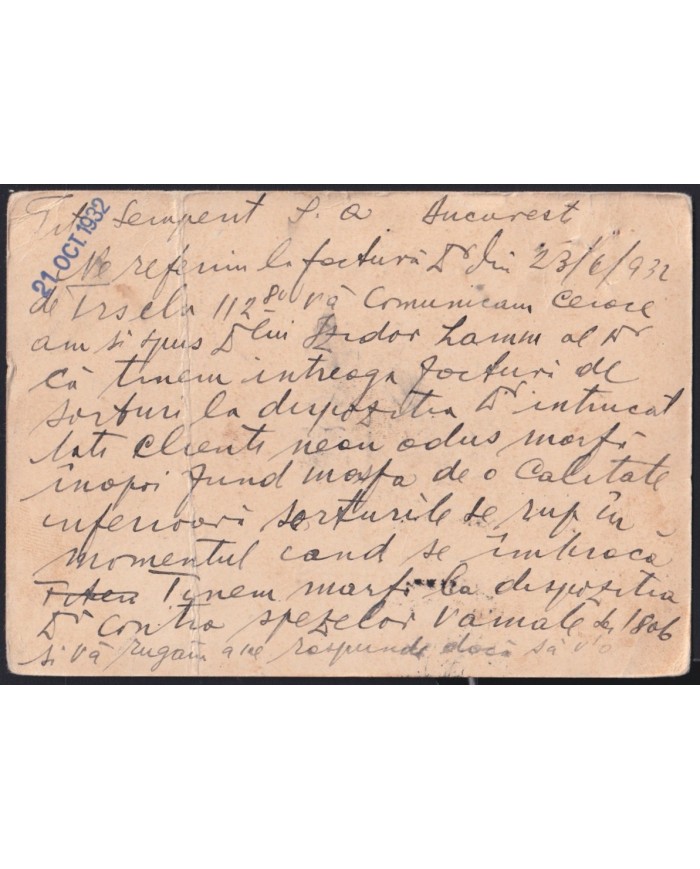 Tit. Semperit S. A Bucuresti
21. OCT. 1932
Ne referim la factură Dv din 23/6/932
de 112 80 vă comunicam ceiace
am si spus Dlui Izidor Lamm al Dv
că tinem intreaga facturi de
sorturi la dispozitia Dv intrucât
toti clienti neau adus marfă
inapoi fund marfa de o calitate
inferioară sorturile se rup în
momentul cand se îmbracă
Tinem marfa la dispozitia
Dv contra spezelor vamale de 1806
si vă rugăm a ne raspunde dacă să v'o